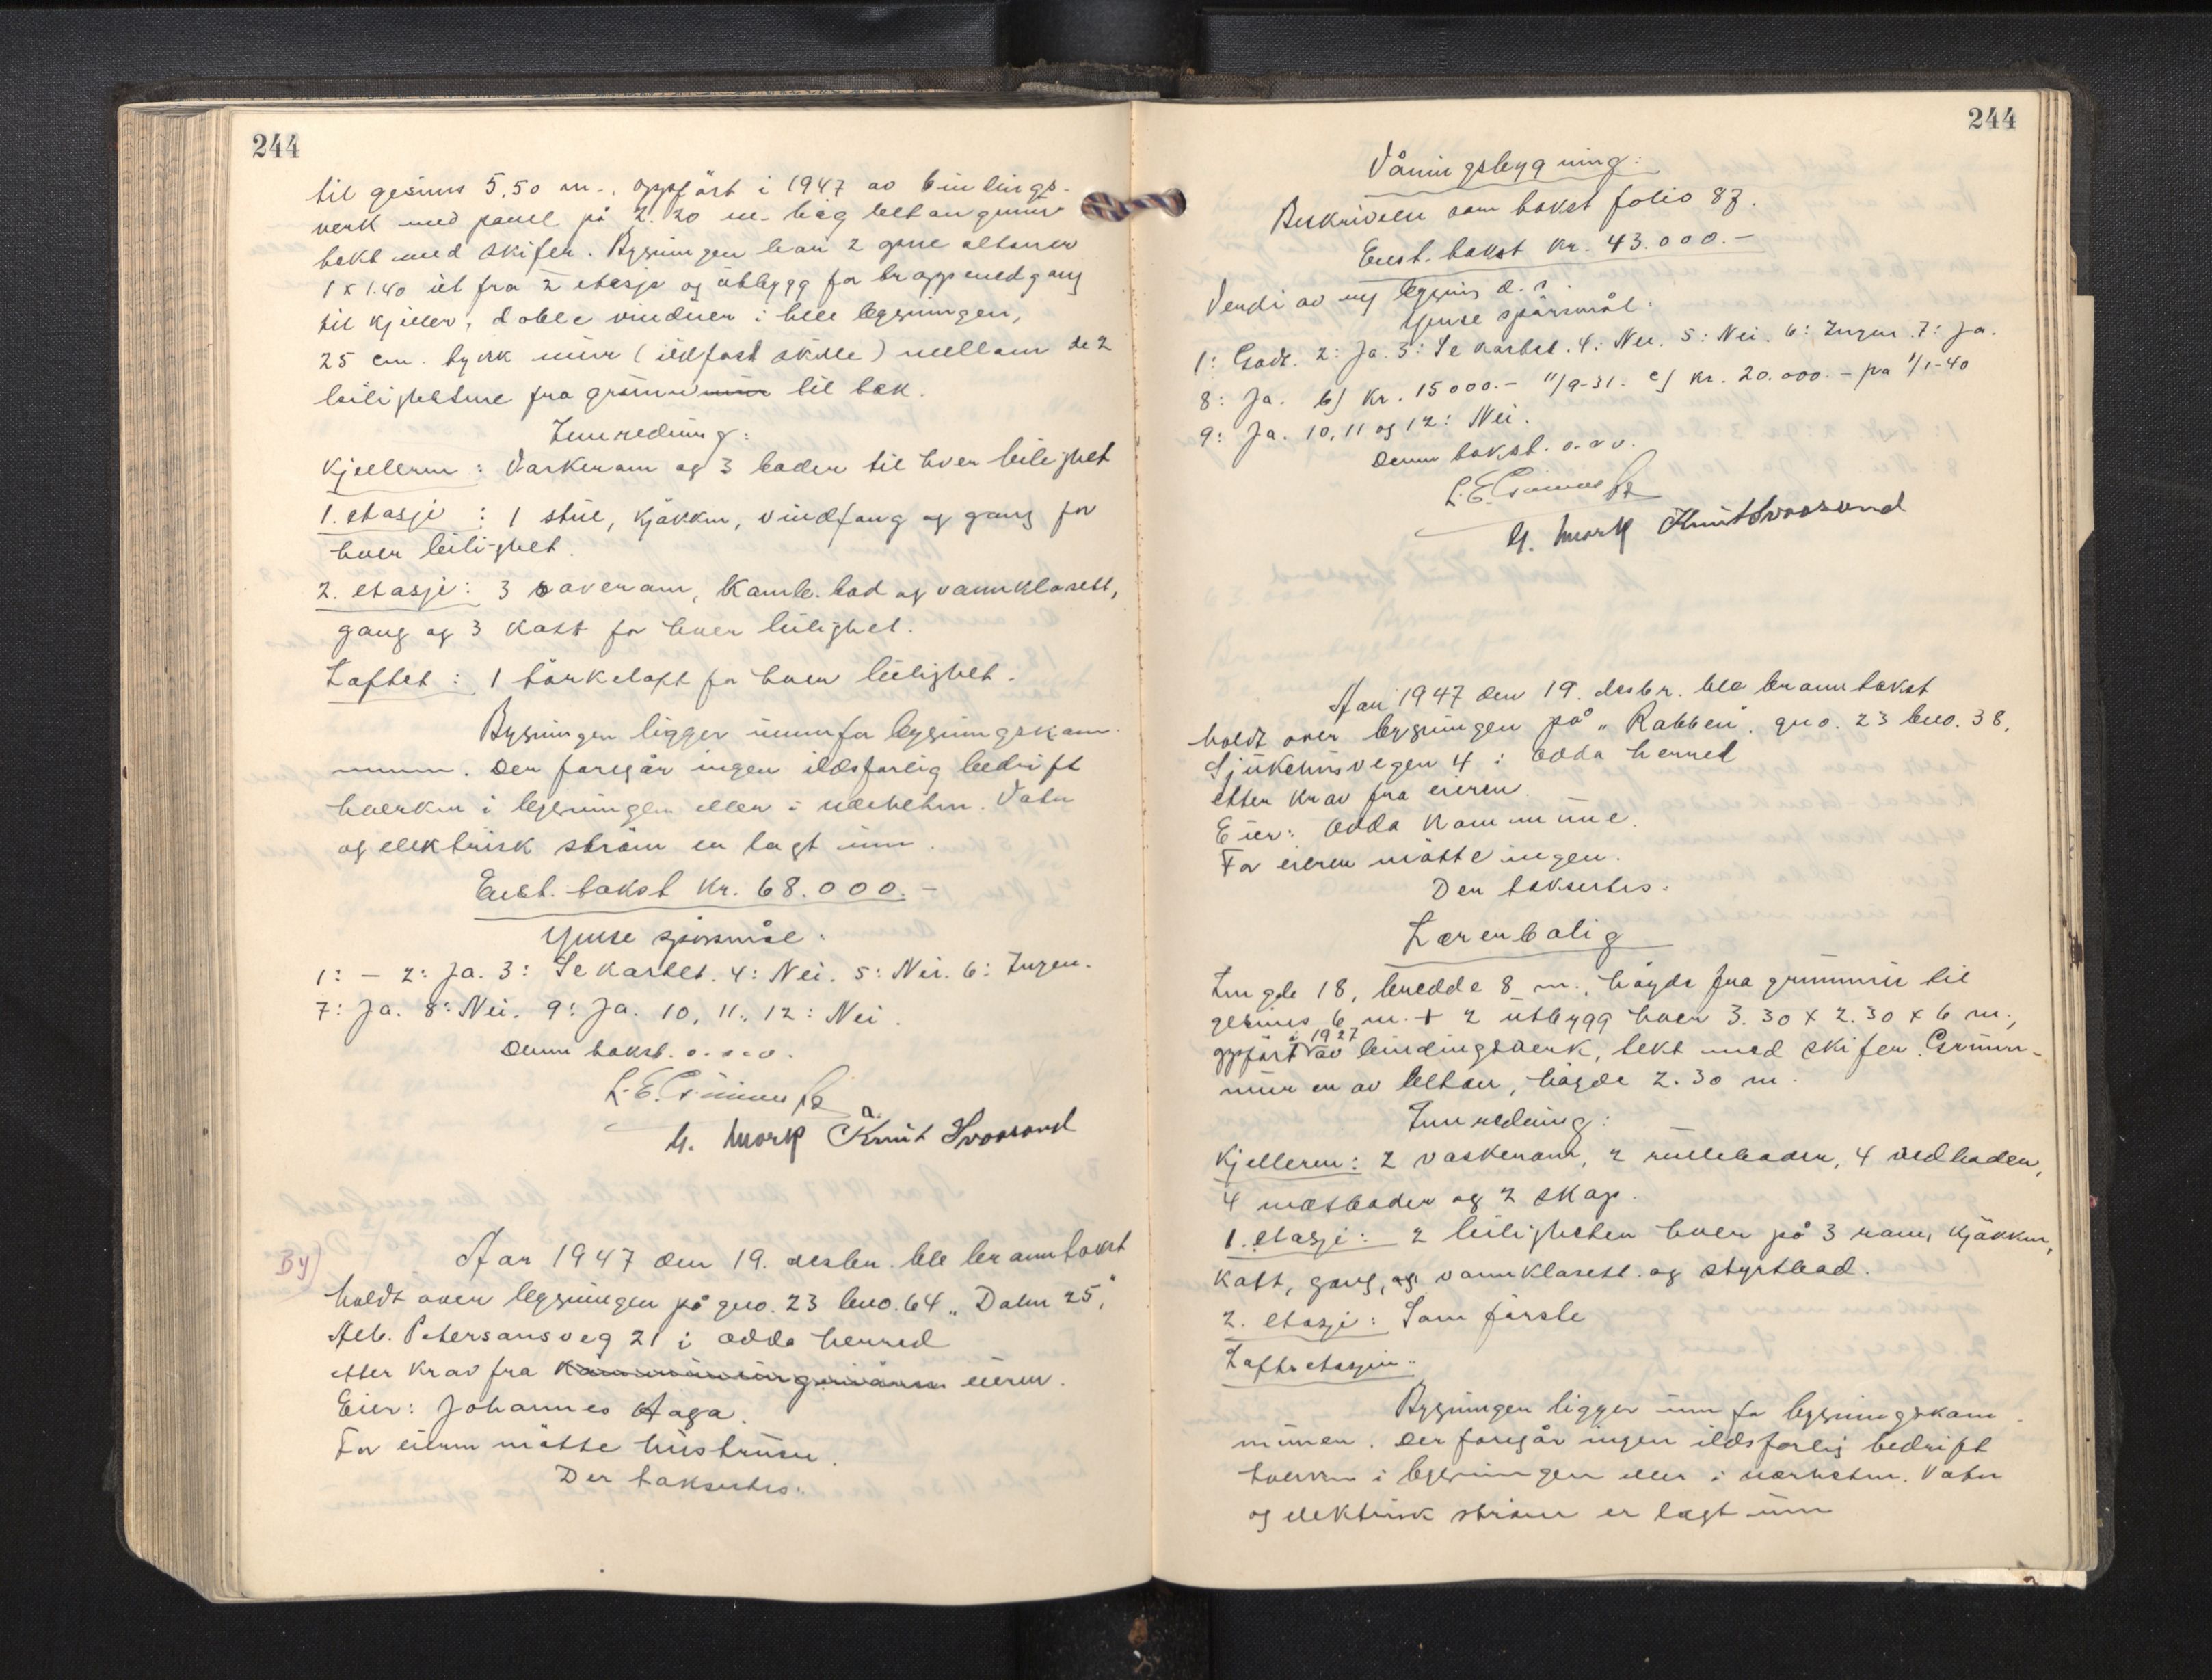 244
til gesims 5,50 m., oppført i 1947 av bindings-
verk med panel på 2.20 m. høg betongmur
tekt med skifer. Bygningen har 2 altaner
1 x 1.40 ut fra 2 etasje og utbygg for trapp nedgang
til kjeller, doble vinduer i hele bygningen,
25 cm. tykk mur (ildfast skille) mellom de 2
leilighetene fra grunnmur til tak.
Innredning:
Kjelleren: Vaskerom og 3 boder til hver leilighet
1. etasje: 1 stue, kjøkken, vindfang og gang for
hver leilighet.
2. etasje: 3 soverom, komb. bad og vannklosett,
gang og 3 kott for hver leilighet.
Loftet: 1 tørkeloft for hver leilighet.
Bygningen ligger innenfor bygningskom-
munen. Der foregår ingen ildsfarlig bedrift
hverken i bygningen eller i nærheten. Vatn
og elektrisk strøm er lagt inn.
Enst. takst kr. 68.000.-
Ymse spørsmål:
1: - 2: Ja. 3: Se kartet. 4: Nei. 5: Nei. 6: Ingen.
7: Ja. 8: Nei. 9: Ja. 10, 11, 12: Nei.
Denne takst. o.s.v.
L. E.
G. Mork Knut Svoosand
By)
Aar 1947 den 19. desbr. ble branntakst
holdt over bygningen på gno. 23 bno. 64 „Dalen 25",
Alb. Petersonsveg 21 i Odda herred
etter krav fra eieren.
Eier: Johannes Aaga.
For eieren møtte hustruen.
Der taksertes:
244
Våningsbygning:
Beskrivelse som takst folio 87.
Enst. takst kr. 43.000.-
Verdi av ny bygning d. s.
Ymse spørsmål:
1: Godt. 2: Ja. 3: Se kartet. 4: Nei. 5: Nei. 6: Ingen. 7: Ja.
8: Ja. b) kr. 15000.- 11/9-31. c) kr. 20.000.- på 1/1-40
9: Ja. 10, 11 og 12: Nei.
Denne takst. o.s.v.
L. E.
G. Mork Knut Svoosand
Aar 1947 den 19. desbr. ble branntakst
holdt over bygningen på „Rabben". gno. 23 bno. 38,
Sjukehusvegen 4 i Odda herred
etter krav fra eieren.
Eier: Odda kommune.
For eieren møtte ingen.
Der taksertes:
Lærerbolig
Lengde 18, bredde 8 m., høyde fra grunnmur til
gesims 6 m. + 2 utbygg hver 3.30 x 2.30 x 6 m.,
oppført i 1927 av bindingsverk, tekt med skifer. Grunn-
mur er av betong, høgde 2.30 m.
Innredning:
Kjelleren: 2 vaskerom, 2 rulleboder, 4 vedboder,
4 matboder og 2 skap.
1. etasje: 2 leiligheter hver på 3 rom, kjøkken,
kott, gang, vannklosett og styrtbad.
2. etasje: Som første
Loftsetasjen:
Bygningen ligger innenfor bygningskom-
munen. Der foregår ingen ildsfarlig bedrift
hverken i bygningen eller i nærheten. Vatn
og elektrisk strøm er lagt inn